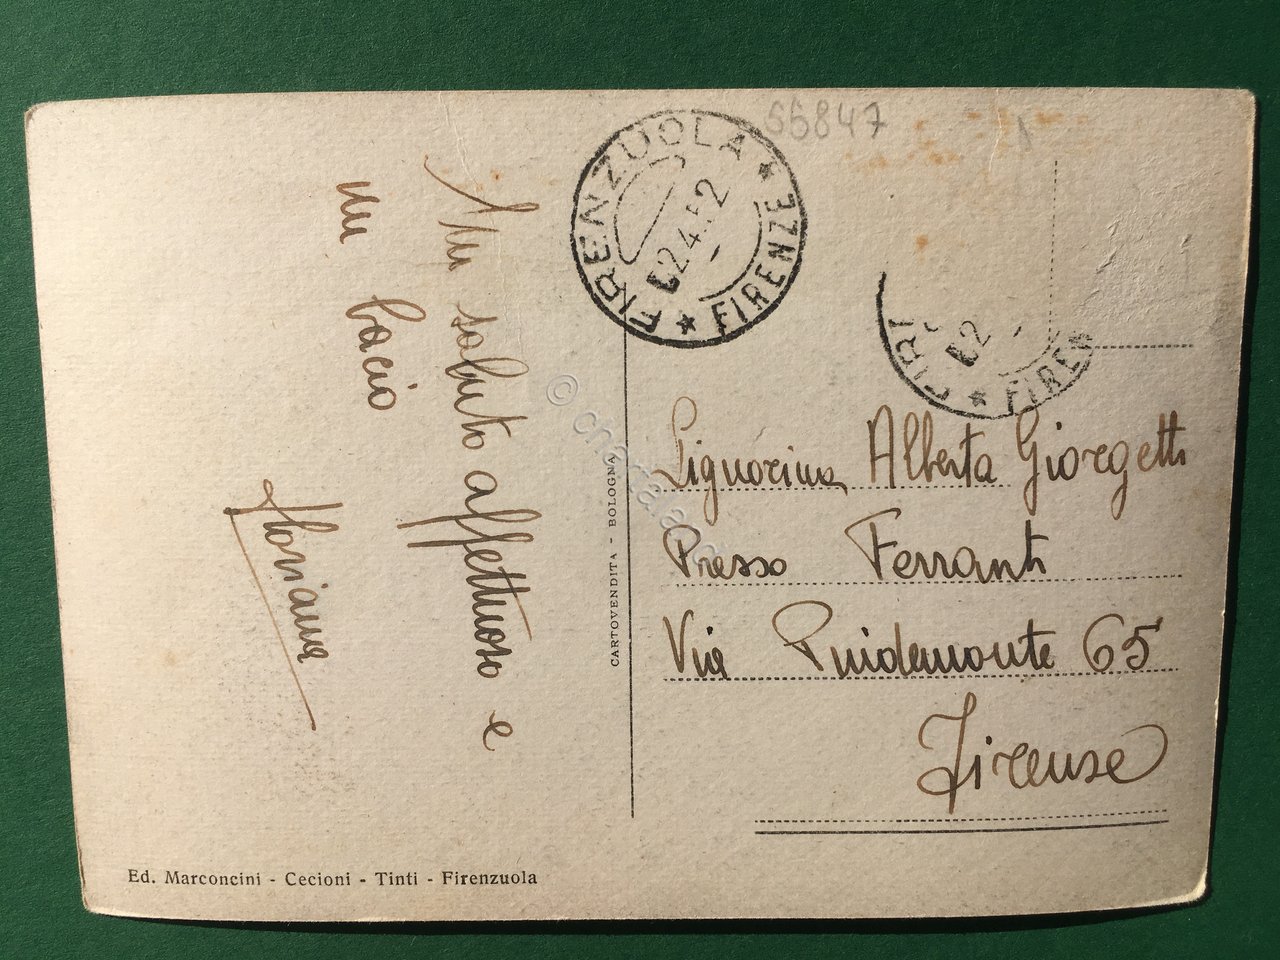 66847
FIRENZUOLA * FIRENZE *
2.4.52
FIRE
2
* FIREN
Un saluto affettuoso e
un bacio
Floriana
CARTOVENDITA - BOLOGNA
© charta.
Signorina Alberta Giorgetti
Presso Ferranti
Via 65
Firenze
Ed. Marconcini - Cecioni - Tinti - Firenzuola